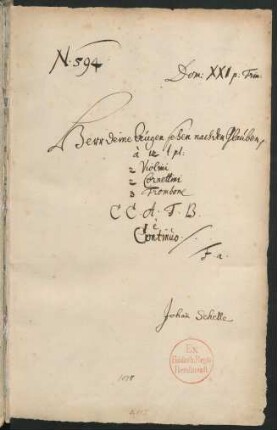 N. 594
Dom: XXI p. Trin:
Herr deine Augen sehen nach dem Glauben,
à 12
2 Violini
2 Cornettini
3 Trombone
C C A. T. B.
è
Continuo
Johan Schelle
Ex
Biblioth. Regia
Berolinensi.